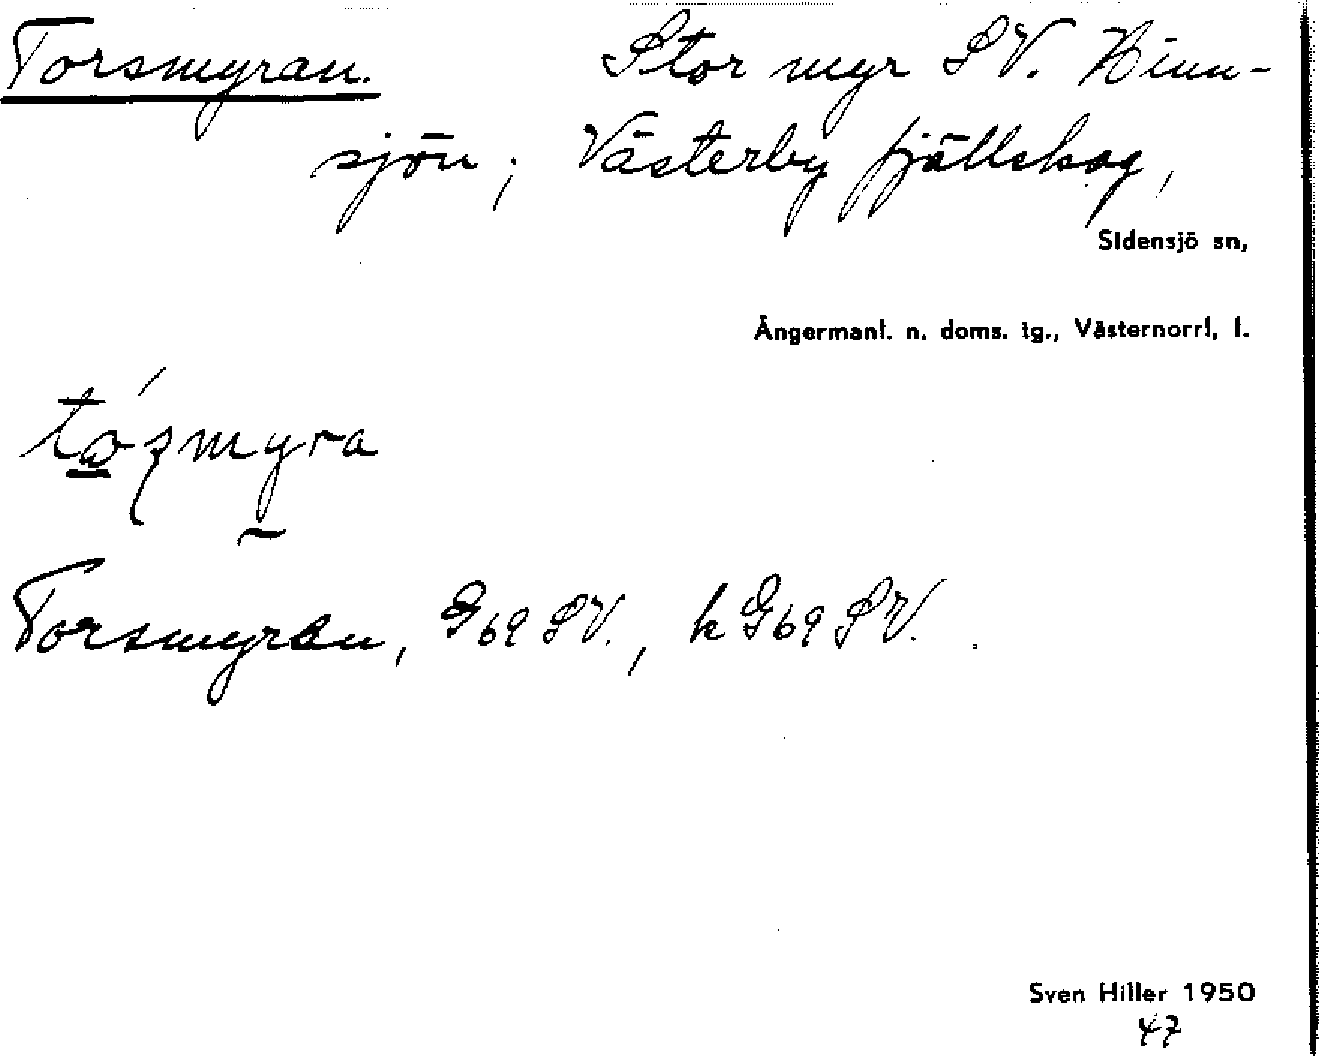 Torsmyran. Stor myr SV. Hinn-
sjön; Västerby fjällskog,
Sidensjö sn,
Ångermanl. n. doms. tg., Västernorrl. l.
Torsmyran, G69 SV., k G69 SV.
Sven Hiller 1950
47